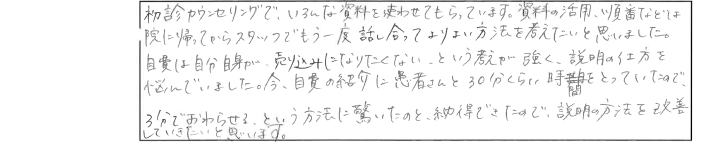 初診カウンセリングで、いろんな資料を使わせてもらっています。資料の活用、順番などは
院に帰ってからスタッフでもう一度話し合ってよりよい方法を考えたいと思いました。
自費は自分自身が、売り込みになりたくない、という考えが強く、説明の仕方を
悩んでいました。今、自費の紹介に患者さんと30分くらい時間をとっていたので、
3分でおわらせる、という方法に驚いたのと、納得できたので、説明の方法を改善
していきたいと思います。